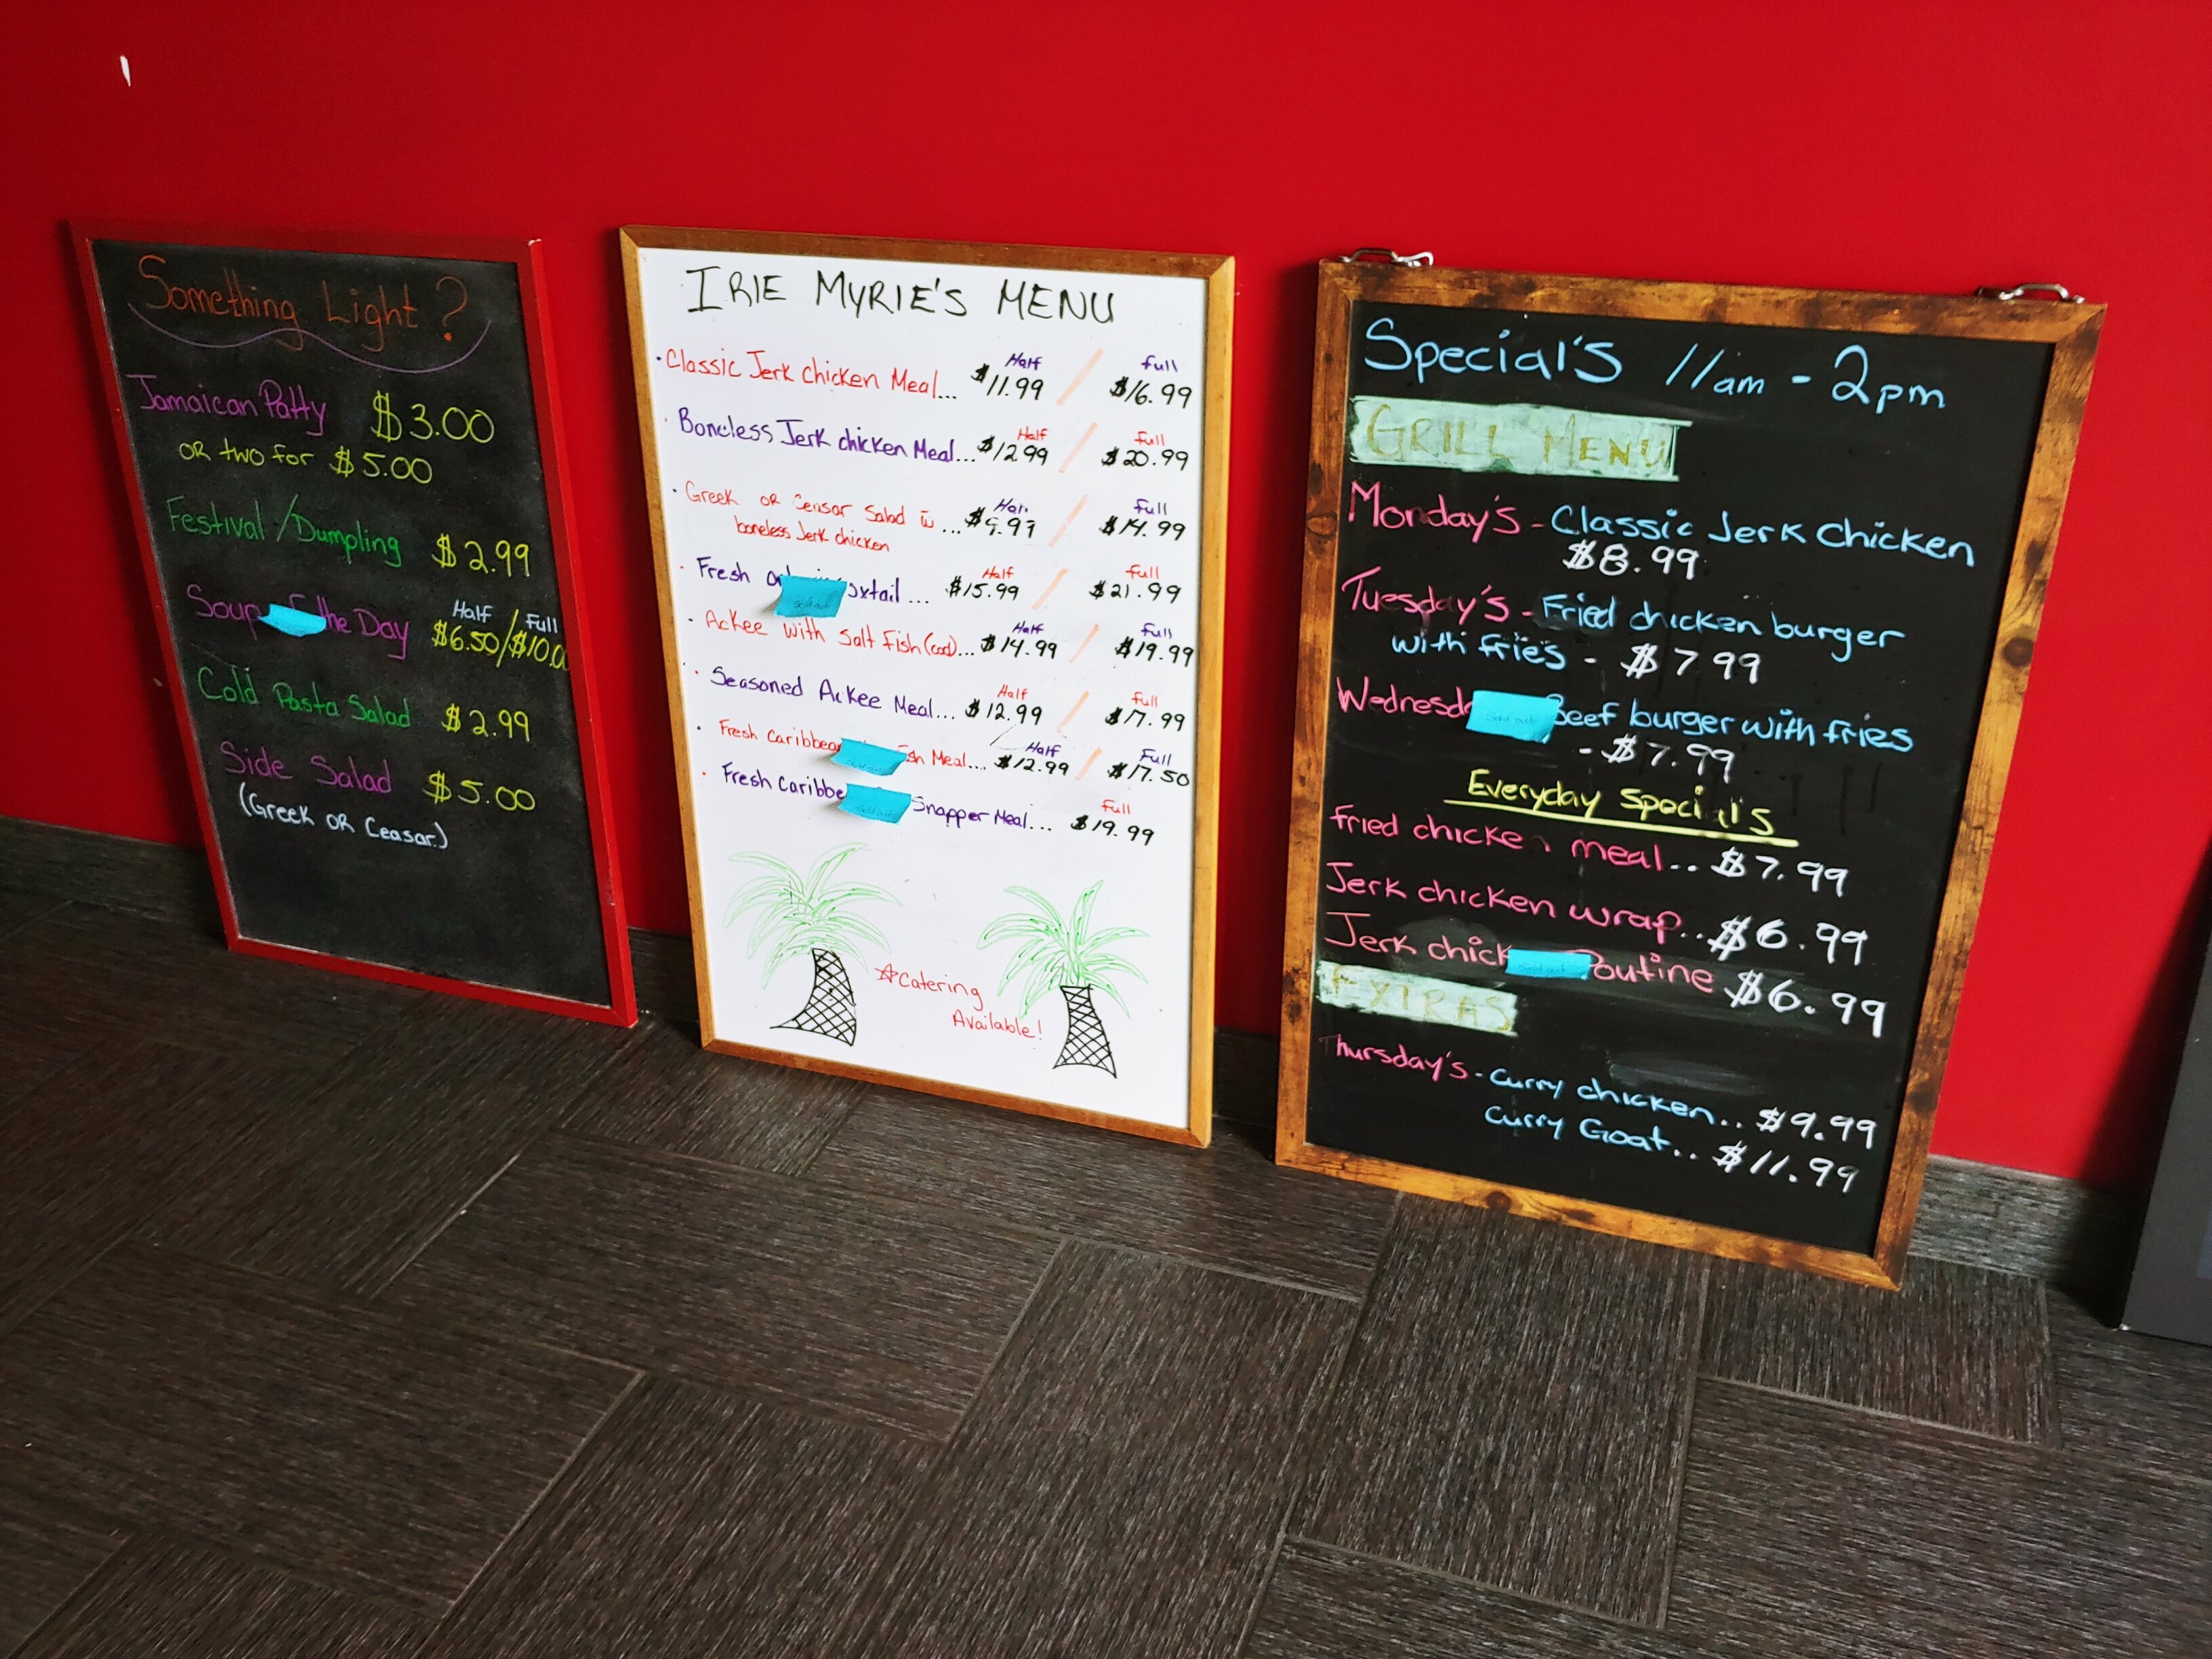 Something Light?
Jamaican Patty $3.00
or two for $5.00
Festival/Dumpling $2.99
Half Full
Soup the Day $6.50/$10.00
Cold Pasta Salad $2.99
Side Salad $5.00
(Greek or Ceasar)
IRIE MYRIE'S MENU
Half / Full
Classic Jerk chicken Meal... $11.99 / $16.99
Half / Full
Boneless Jerk chicken Meal... $12.99 / $20.99
Half / Full
Greek or Ceasar Salad w ... $9.99 / $14.99
boneless Jerk chicken
Half / Full
Fresh oxtail ... $15.99 / $21.99
sold out
Half / Full
Ackee with Salt Fish (cod)... $14.99 / $19.99
Half / Full
Seasoned Ackee Meal... $12.99 / $17.99
Half / Full
Fresh Caribbean Meal.... $12.99 / $17.50
Full
Fresh Caribbe Snapper Meal... $19.99
sold out
☆Catering
Available!
Special's 11am - 2pm
GRILL MENU
Monday's - Classic Jerk Chicken
$8.99
Tuesday's - Fried chicken burger
with fries - $7.99
Wednesda Beef burger with fries
sold out
- $7.99
Everyday Special's
fried chicken meal.. $7.99
Jerk chicken wrap.. $6.99
Jerk chick Poutine $6.99
sold out
EXTRAS
Thursday's - Curry chicken.. $9.99
Curry Goat.. $11.99